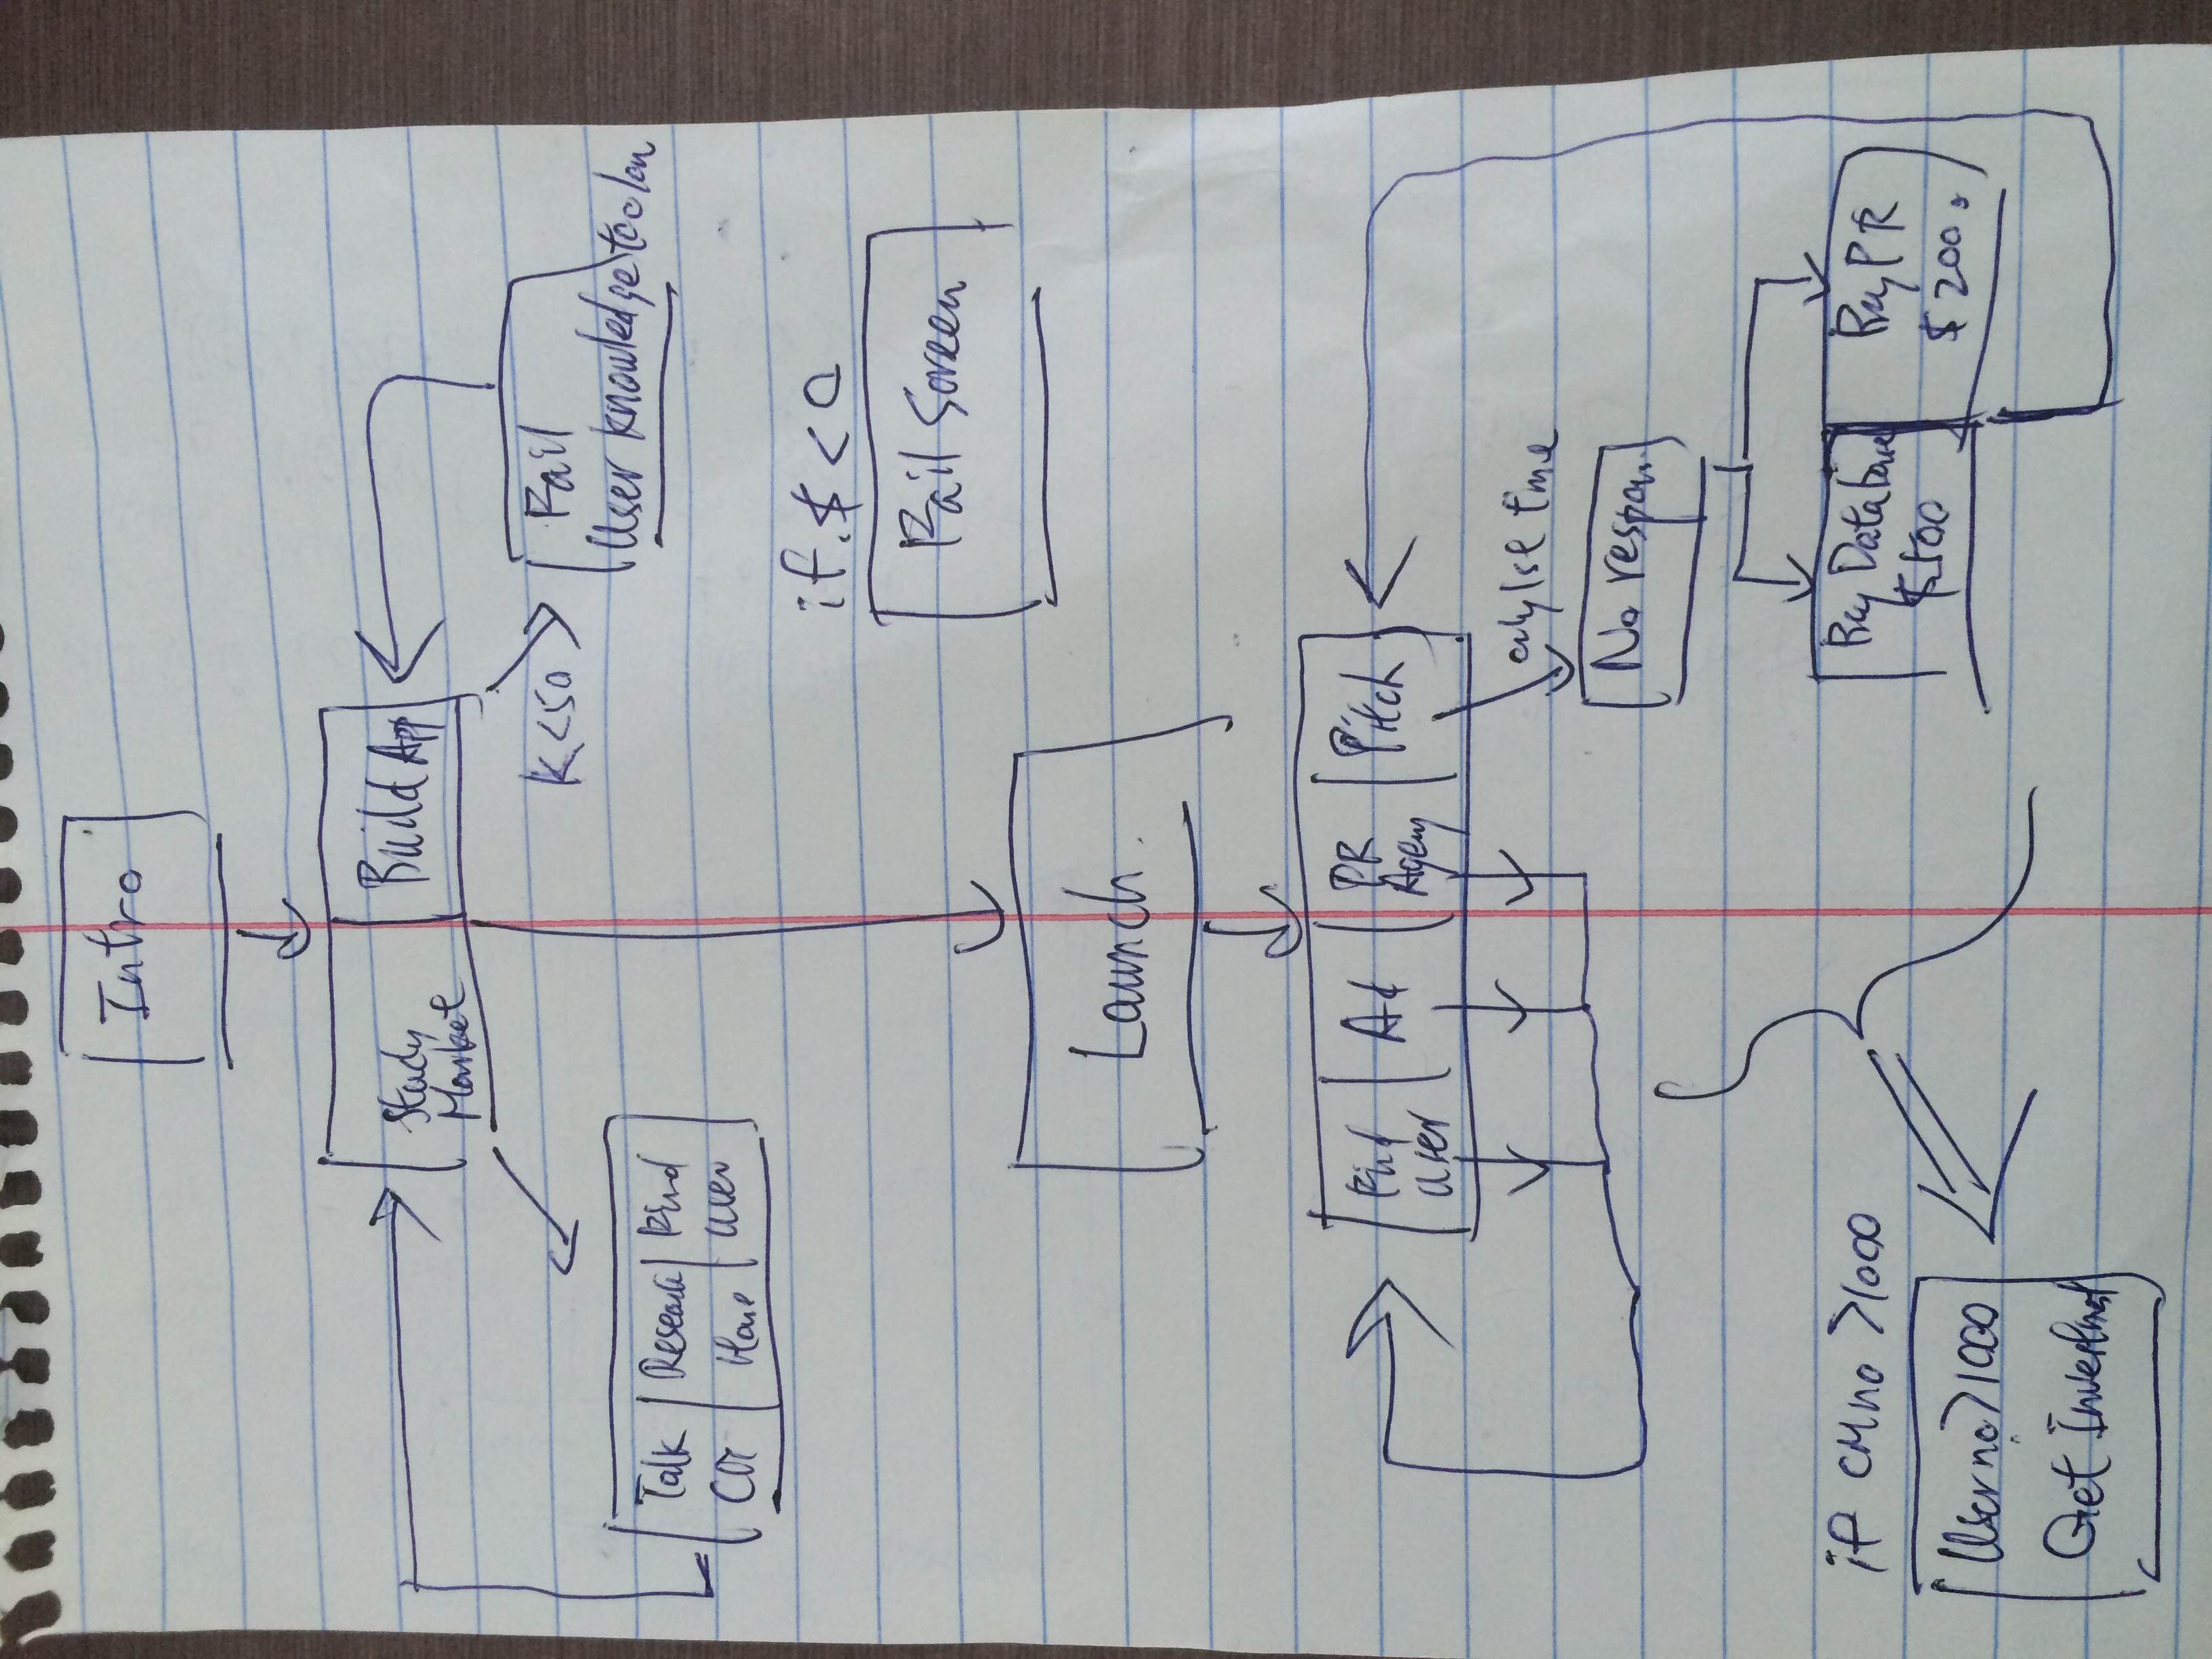 Intro
Study
Market
Build App
K<50
Fail
User knowledge too low
Talk
Research
Find
User
Home
if $ < 0
Fail Screen
Launch
Find
User
Ad
PR
Agency
Pitch
only 1st time
No respon
Buy Database
$500
Buy PR
$200
if no >1000
User no >1000
Get Investment